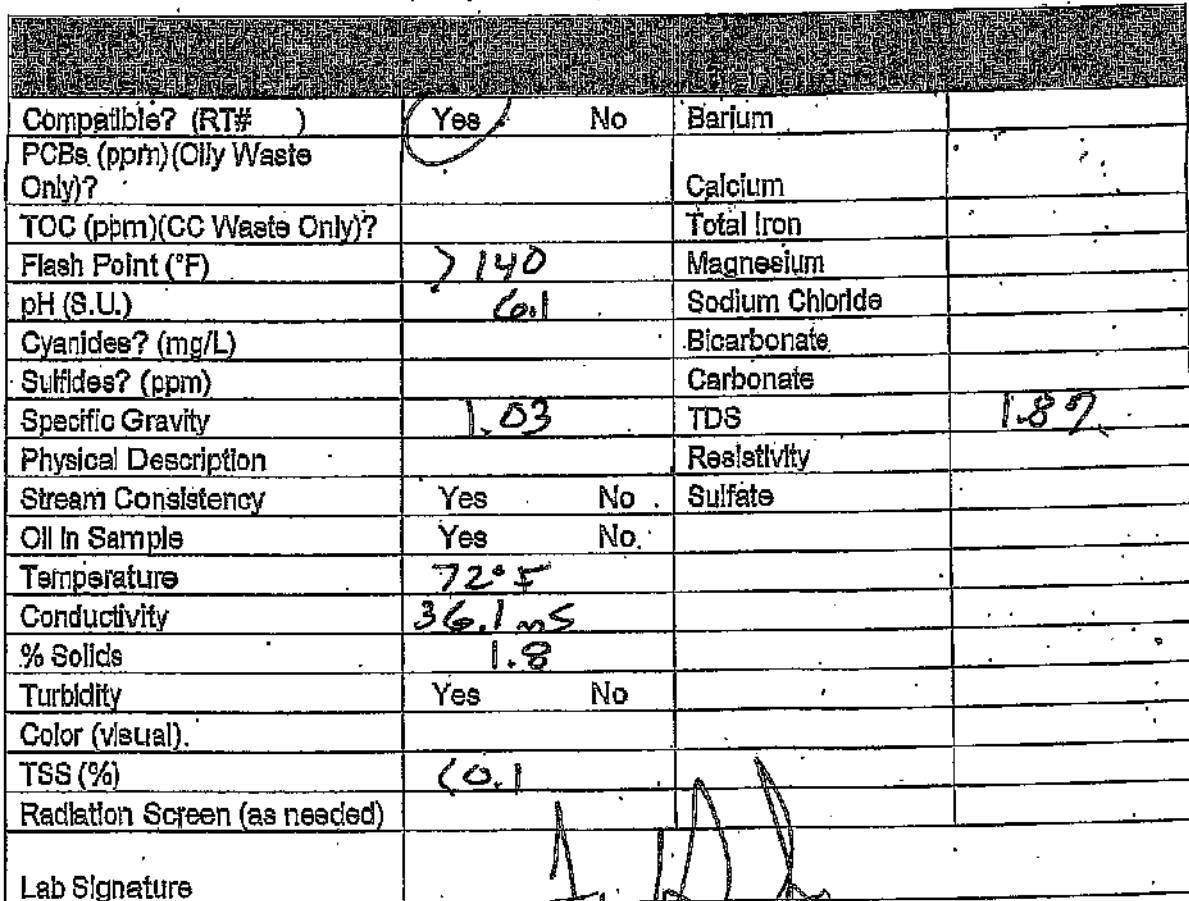 Compatible? (RT# ) Yes No Barium
PCBs (ppm)(Oily Waste
Only)? Calcium
TOC (ppm)(CC Waste Only)? Total Iron
Flash Point (°F) >140 Magnesium
pH (S.U.) 6.1 Sodium Chloride
Cyanides? (mg/L) Bicarbonate
Sulfides? (ppm) Carbonate
Specific Gravity 1.03 TDS 1.8%
Physical Description Resistivity
Stream Consistency Yes No Sulfate
Oil in Sample Yes No
Temperature 72°F
Conductivity 36.1 mS
% Solids 1.8
Turbidity Yes No
Color (visual)
TSS (%) <0.1
Radiation Screen (as needed)
Lab Signature